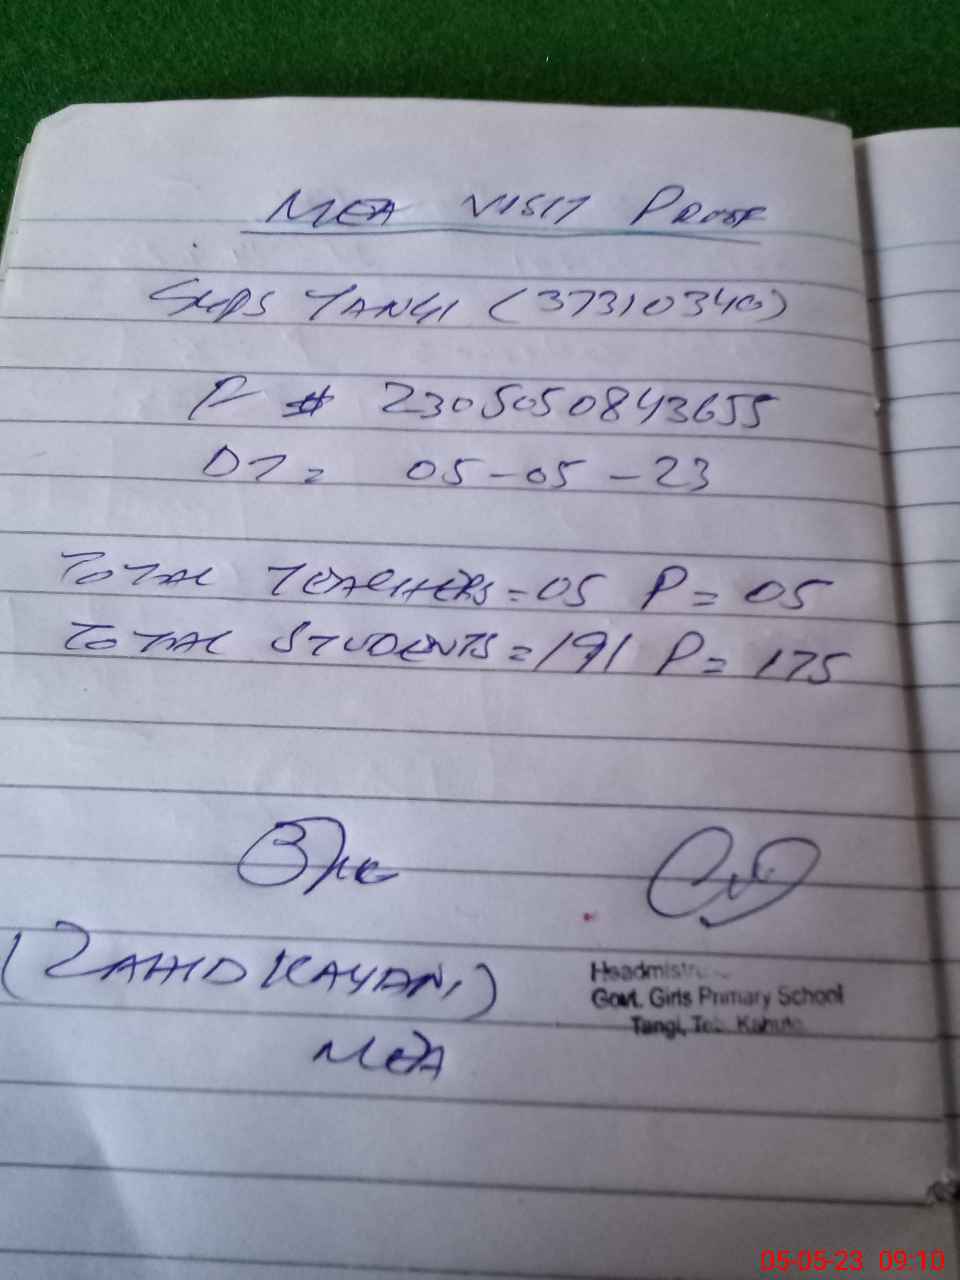 MEA VISIT PROOF
GGPS TANGI (37310340)
P # 2305050843655
DT = 05-05-23
TOTAL TEACHERS = 05 P = 05
TOTAL STUDENTS = 191 P = 175
(ZAHID KAYANI)
MEA
Headmistress
Govt. Girls Primary School
Tangi, Teh. Kahuta
05-05-23 09:10